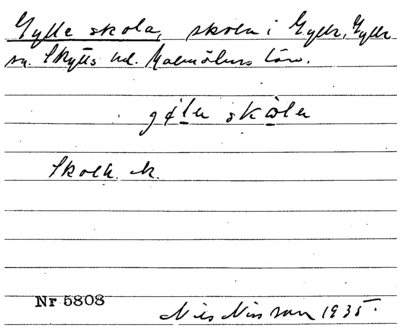 Gylle skola, skola i Gylle, Gylle
sn. Skytts hd. Malmöhus län.
skolen
Skolk. M.
Nr 5808
Nils Nilsson 1935.